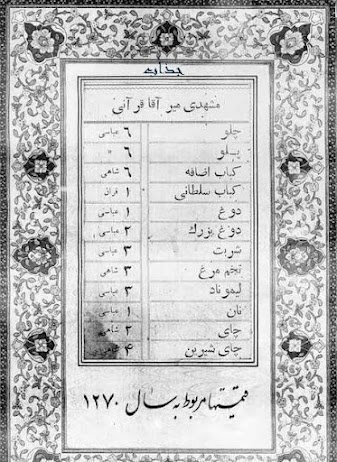 جذاب
مشهدی میر آقا قرآنی
چلو ۶ عباسی
پلو ۶ "
کباب اضافه ۶ شاهی
کباب سلطانی ۱ قران
دوغ ۱ عباسی
دوغ بزرگ ۲ عباسی
شربت ۳ عباسی
تخم مرغ ۳ شاهی
لیموناد ۳ عباسی
نان ۱ عباسی
چای ۲ شاهی
چای شیرین ۴ شاهی
قیمتها مربوط به سال ۱۲۷۰